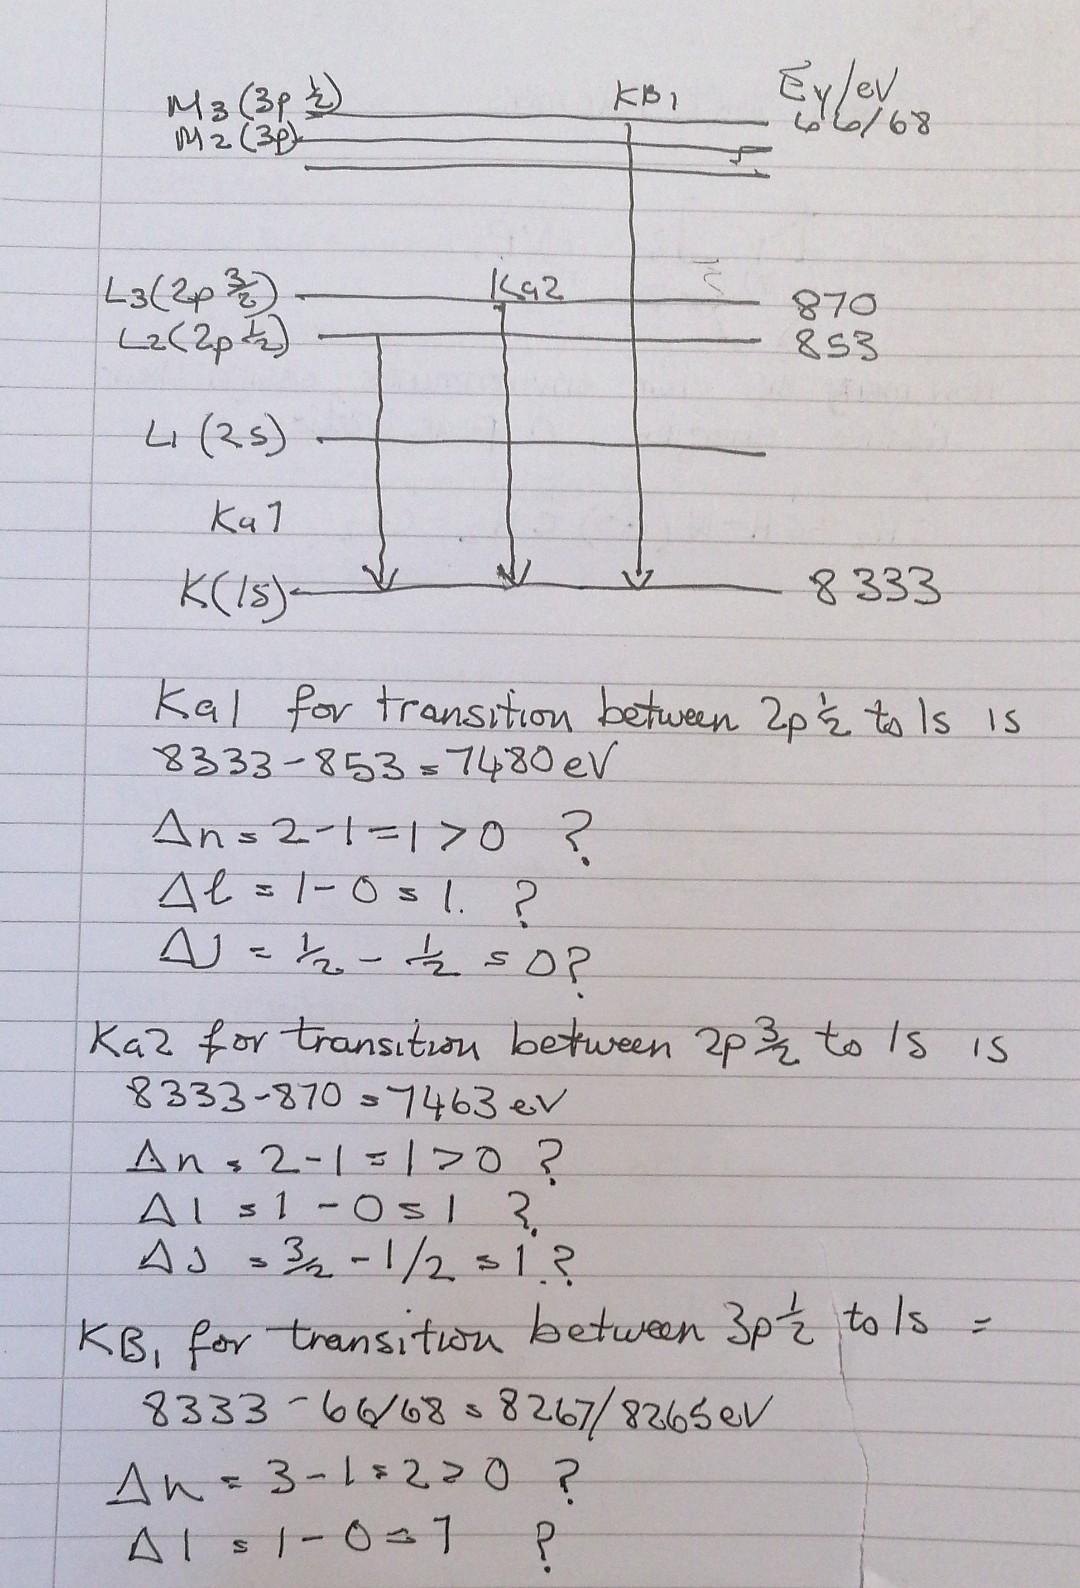 M3 (3p 1/2) KB1 Ev/eV
M2 (3p) 66/68
L3 (2p 3/2) Ka2 870
L2 (2p 1/2) 853
L1 (2s)
Ka1
K(1s) 8333
Ka1 for transition between 2p 1/2 to 1s is
8333-853=7480eV
Δn=2-1=1>0 ?
Δl=1-0=1. ?
ΔJ=1/2-1/2=0?
Ka2 for transition between 2p 3/2 to 1s is
8333-870=7463eV
Δn=2-1=1>0 ?
Δl=1-0=1 ?
ΔJ=3/2-1/2=1.?
KB1 for transition between 3p 1/2 to 1s =
8333-66/68=8267/8265eV
Δn=3-1=2>0 ?
Δl=1-0=1 ?